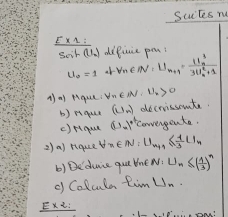 Suites nu
Ex 1:
Soit (Un) définie par:
U₀ = 1 et ∀n∈IN: Uₙ₊₁ = Uₙ³ / 3Uₙ²+1
1) a) Mque: ∀n∈IN: Uₙ > 0
b) Mque (Un) décroissante.
c) Mque (Un) est convergente.
2) a) Mque ∀n∈IN: Uₙ₊₁ ≤ 1/3 Uₙ
b) Déduire que ∀n∈IN: Uₙ ≤ (1/3)ⁿ
c) Calculer lim Un.
Ex 2: